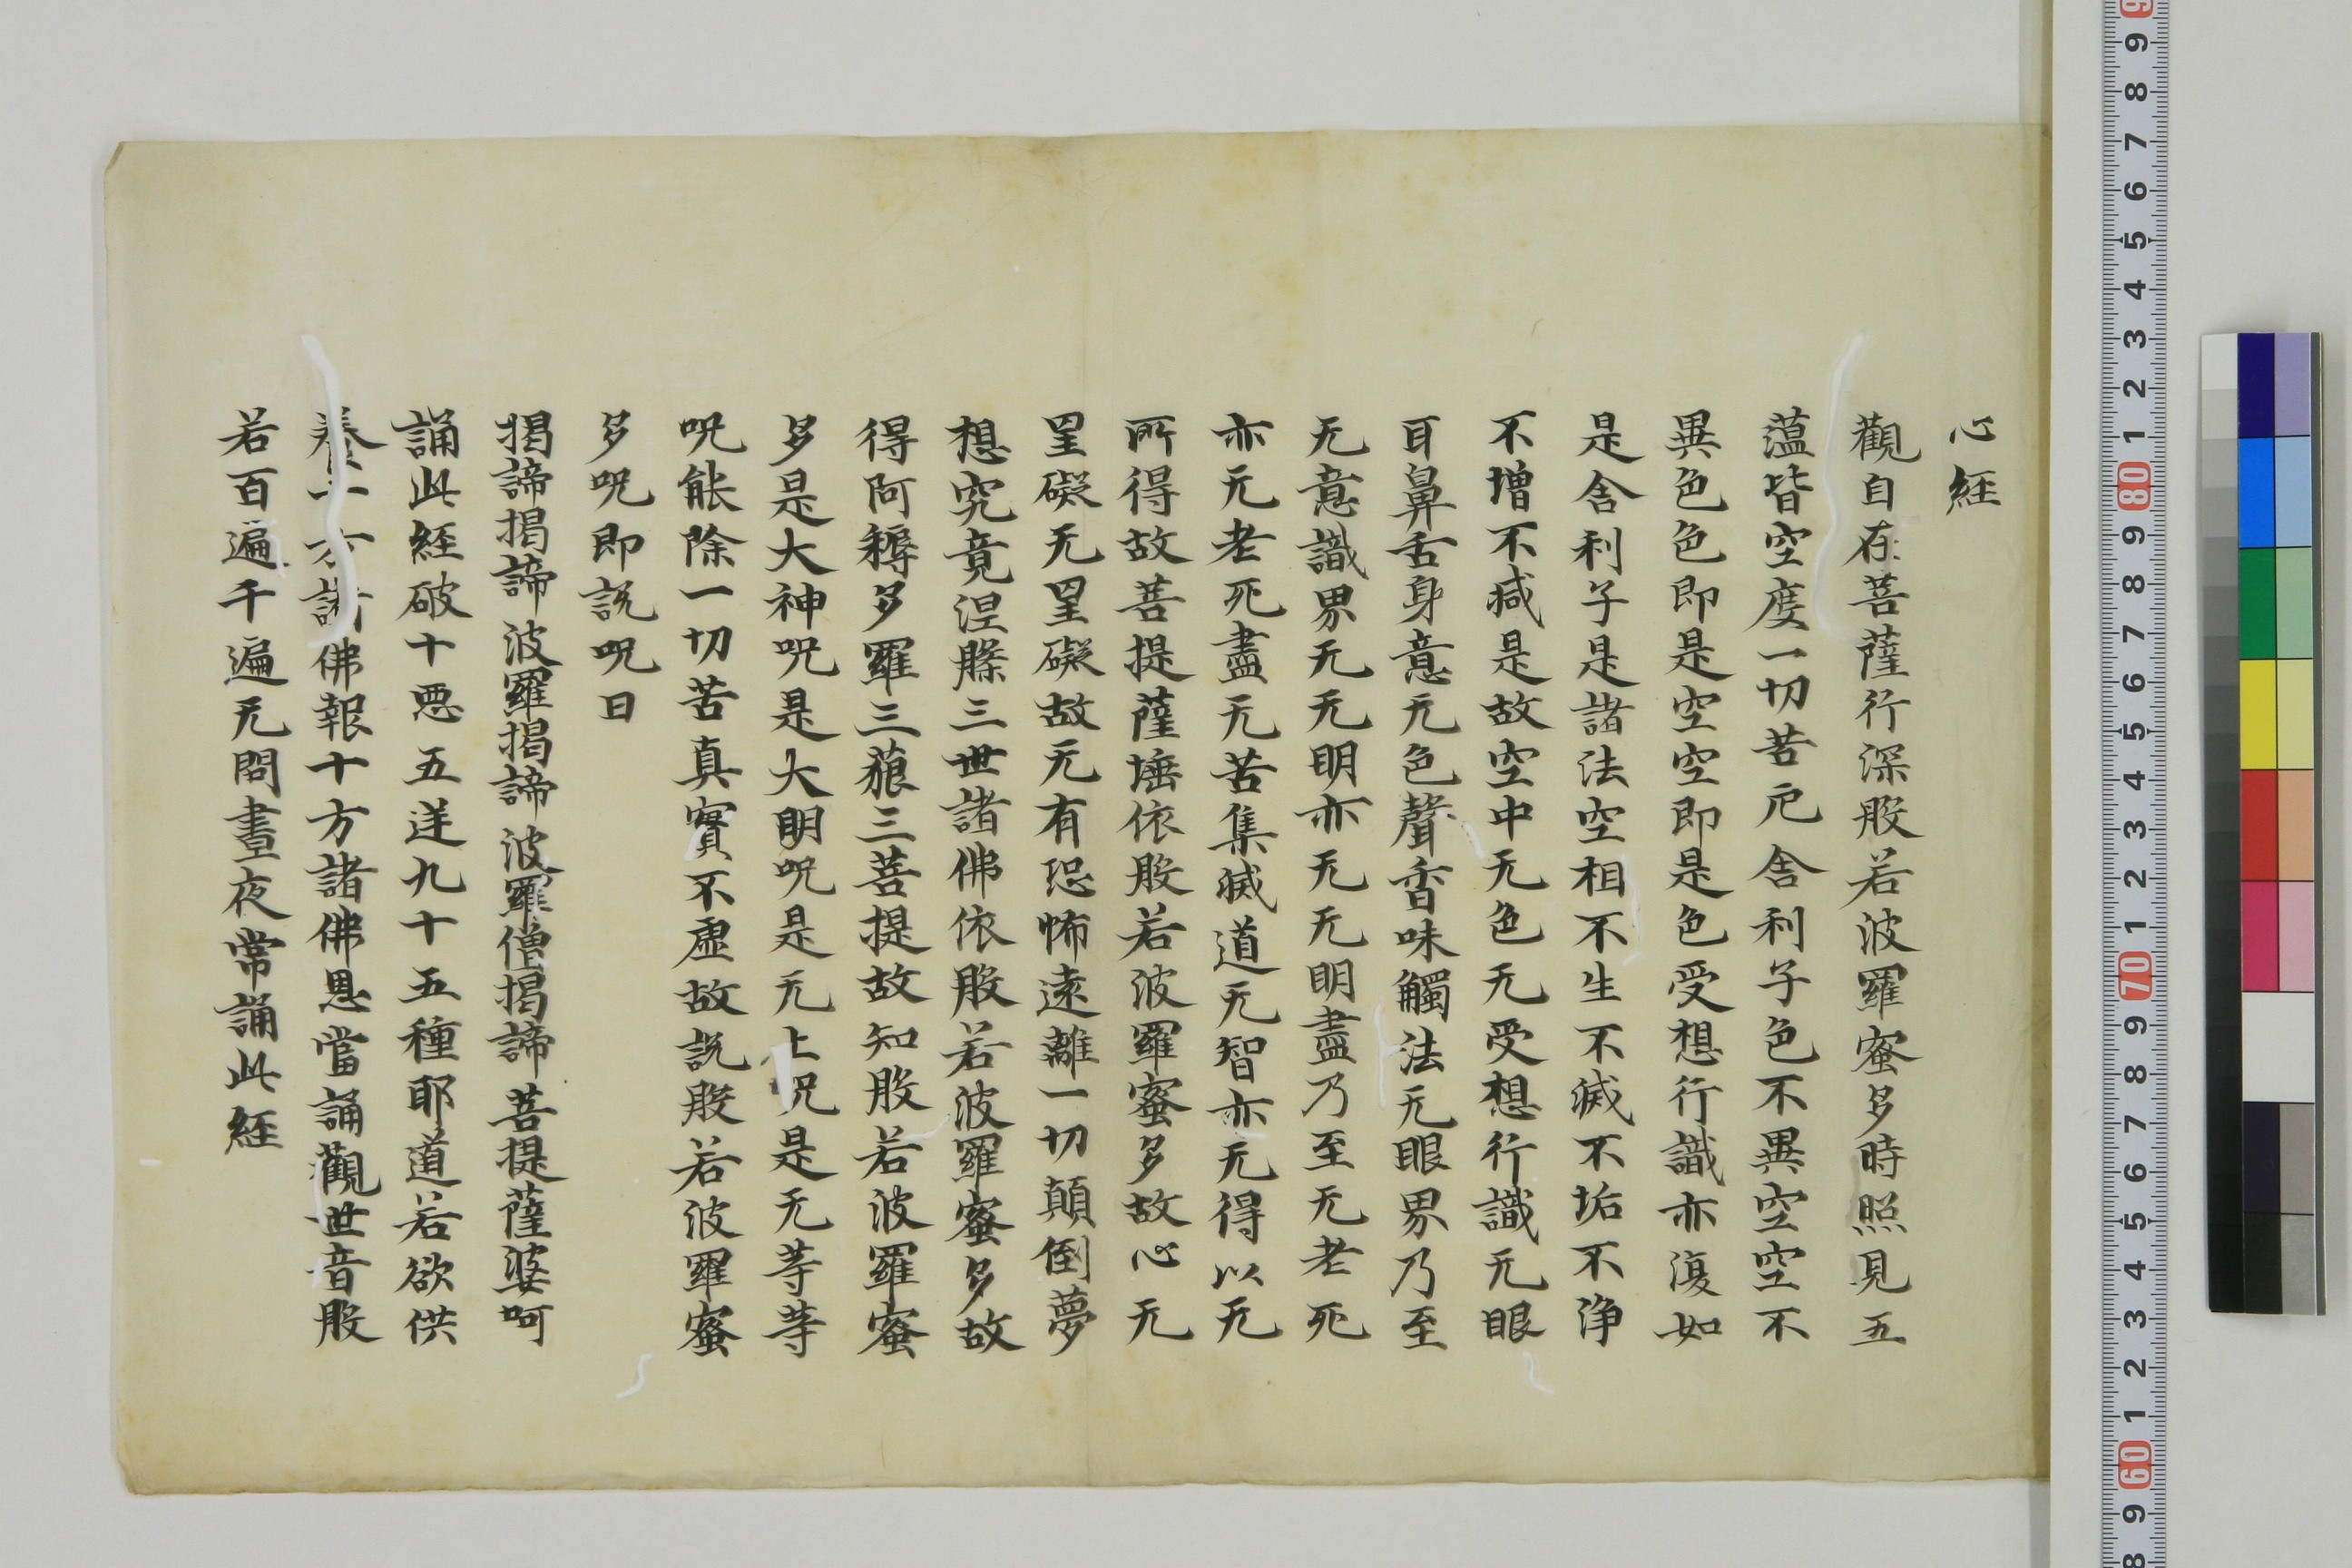 心経
觀自在菩薩行深般若波羅蜜多時照見五
蘊皆空度一切苦厄舍利子色不異空空不
異色色即是空空即是色受想行識亦復如
是舍利子是諸法空相不生不滅不垢不浄
不增不減是故空中无色无受想行識无眼
耳鼻舌身意无色聲香味觸法无眼界乃至
无意識界无无明亦无无明盡乃至无老死
亦无老死盡无苦集滅道无智亦无得以无
所得故菩提薩埵依般若波羅蜜多故心无
罣礙无罣礙故无有恐怖遠離一切顛倒夢
想究竟涅槃三世諸佛依般若波羅蜜多故
得阿耨多羅三藐三菩提故知般若波羅蜜
多是大神呪是大明呪是无上呪是无等等
呪能除一切苦真實不虛故説般若波羅蜜
多呪即説呪曰
揭諦揭諦波羅揭諦波羅僧揭諦菩提薩婆呵
誦此経破十悪五逆九十五種耶道若欲供
養十方諸佛報十方諸佛恩當誦觀世音般
若百遍千遍无問晝夜常誦此経
9 8 7 6 5 4 3 2 1 80 9 8 7 6 5 4 3 2 1 70 9 8 7 6 5 4 3 2 1 60 9 8